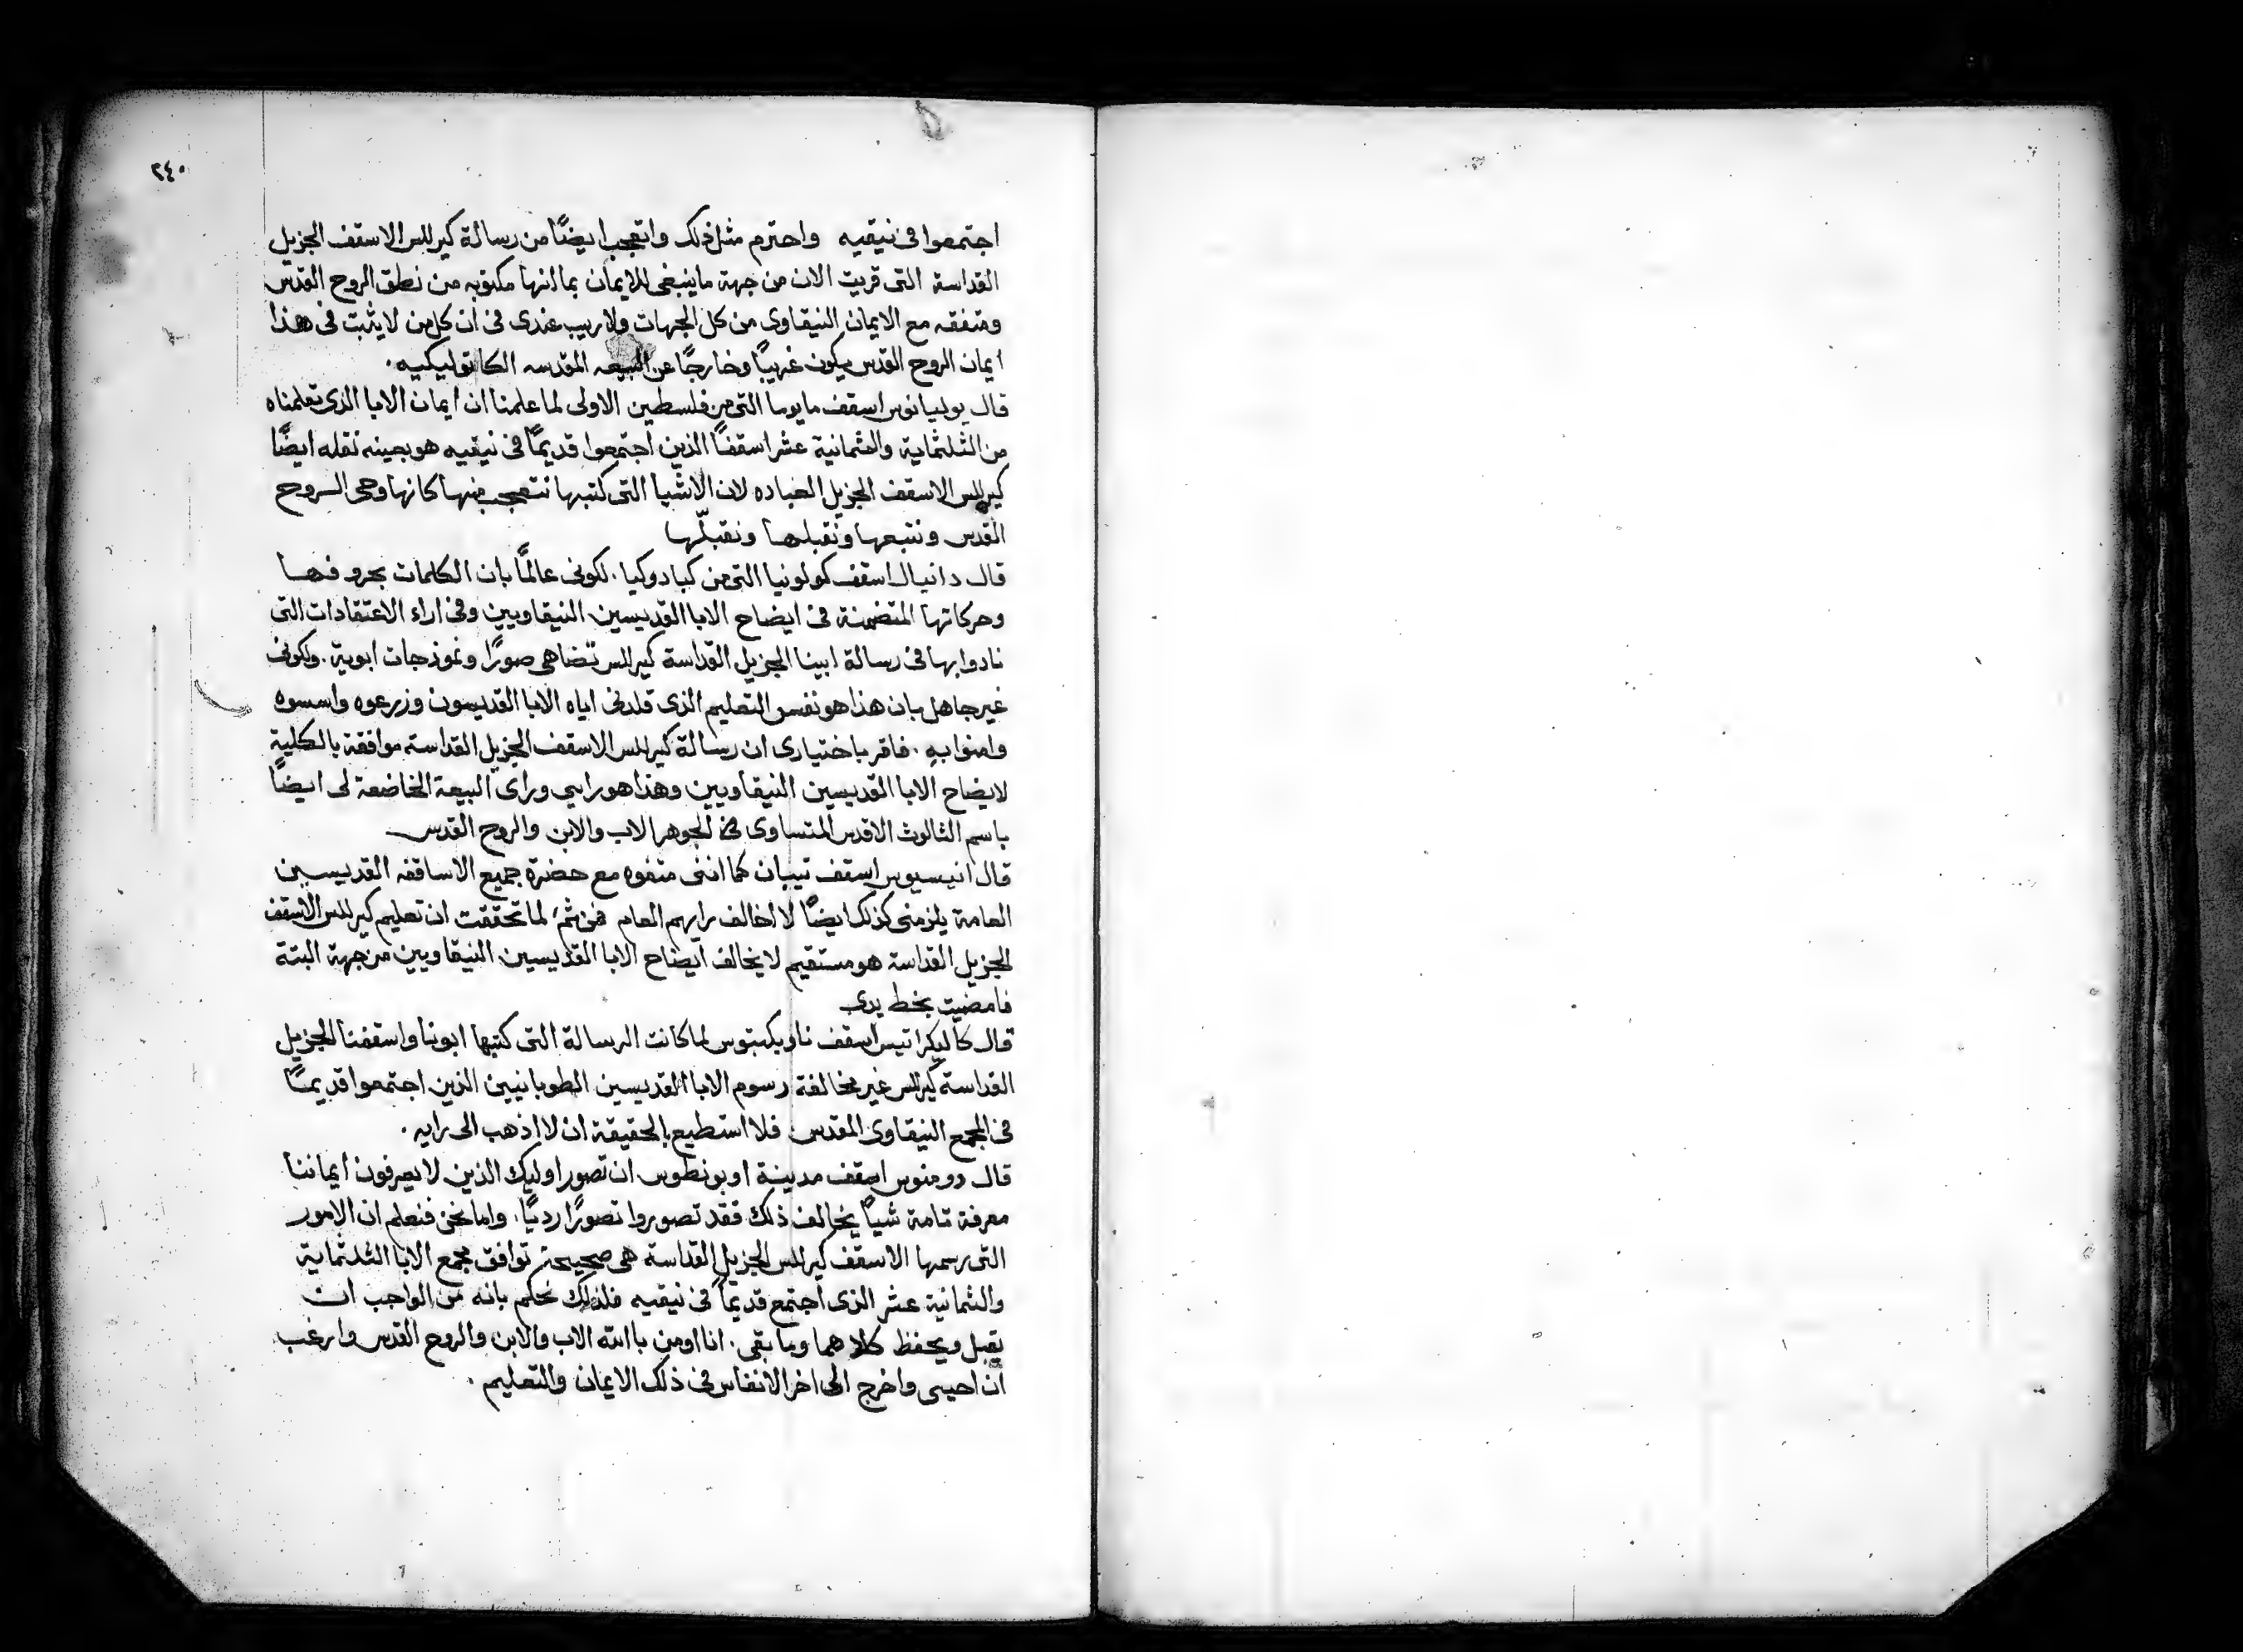 ٢٤٠
اجتمعوا فى نيقيه واحترم مثل ذلك واتعجب ايضًا من رسالة كيرللس الاسقف الجزيل
القداسة التى قريت الان من جهة ما ينبغى للايمان بما انها مكتوبه من نطق الروح القدس
ومتفقه مع الايمان النيقاوى من كل الجهات ولا ريب عندى فى ان كل من لا يثبت فى هذا
ايمان الروح القدس يكون غريبًا وخارجًا عن البيعه المقدسه الكاتوليكيه.
قال يوليانوس اسقف مايوما التى من فلسطين الاولى لما علمنا ان ايمان الابا الذى تعلمناه
من الثلثماية والثمانية عشر اسقفًا الذين اجتمعوا قديمًا فى نيقيه هو بعينه نقله ايضًا
كيرللس الاسقف الجزيل العباده لان الاشيا التى كتبها نتعجب منها كانها وحى الروح
القدس ونتبعها ونقبلها ونقبلّها
قال دانيال اسقف كولونيا التى من كبادوكيا. لكونى عالمًا بان الكلمات بحروفها
وحركاتها المتضمنة فى ايضاح الابا القديسين النيقاويين وفى اراء الاعتقادات التى
نادوا بها فى رسالة ابينا الجزيل القداسة كيرللس تضاهى صورًا ونموذجات ابوية. ولكونى
غير جاهل بان هذا هو نفس التعليم الذى قلدنى اياه الابا القديسون وزرعوه واسسوه
وامنوا بهِ. فاقر باختيارى ان رسالة كيرللس الاسقف الجزيل القداسته موافقة بالكلية
لايضاح الابا القديسين النيقاويين وهذا هو رايى وراى البيعة الخاضعة لى ايضًا
باسم الثالوث الاقدس المتساوى فى الجوهر الاب والابن والروح القدس
قال انيسيوس اسقف تيبان كما اننى متفوه مع حضرة جميع الاساقفه القديسين
العامة يلزمنى كذلك ايضًا لا اخالف رايهم العام فمن ثمَ لما تحققت ان تعليم كيرللس الاسقف
الجزيل القداسة هو مستقيم لا يخالف ايضاح الابا القديسين النيقاويين من جهة البتة
فامضيت بخط يدى
قال كاليكراتيس اسقف ناوبكتبوس لما كانت الرسالة التى كتبها ابونا واسقفنا الجزيل
القداسته كيرللس غير مخالفة رسوم الابا القديسين الطوبانيين الذين اجتمعوا قديمًا
فى المجمع النيقاوى المقدس. فلا استطيع بالحقيقة ان لا اذهب الى رايه.
قال دومنوس اسقف مدينة اوبونطوس ان تصور اوليك الذين لا يعرفون ايماننا
معرفة تامة شياً يخالف ذلك فقد تصوروا تصورًا رديًا. واما نحن فنعلم ان الامور
التى رسمها الاسقف كيرللس الجزيل القداسة هى صحيحة توافق مجمع الابا الثلثماية
والثمانية عشر الذى اجتمع قديماً فى نيقيه فلذلك نحكم بانه من الواجب ان
يقبل ويحفظ كلاهما وما بقى. انا اومن باالله الاب والابن والروح القدس وارغب
ان احيى واخرج الى اخر الانفاس فى ذلك الايمان والتعليم.